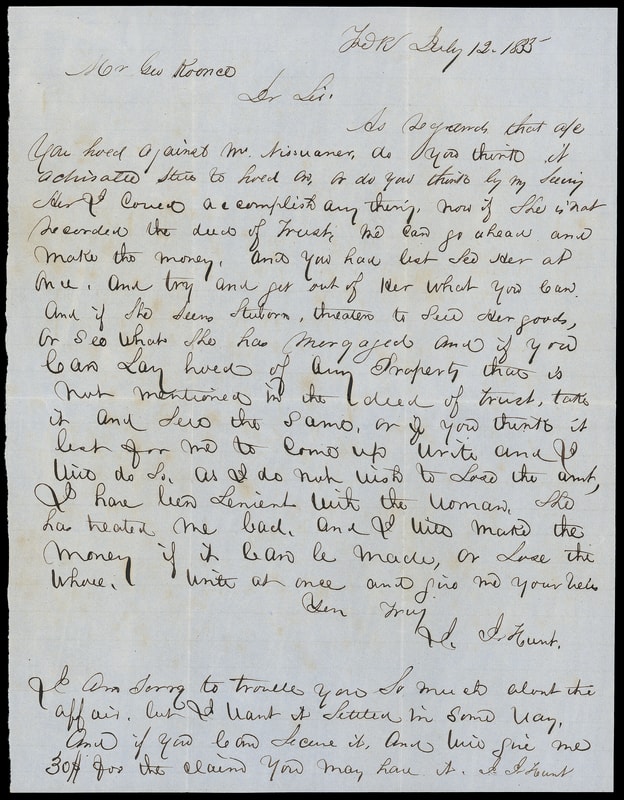 July 12. 1855
Mr Geo Koonce
Dr Sir.
As regards that a/c
You hoed against Mrs. Nissuaner, do you think it
advisable still to hoed on, or do you think by my seeing
Her I Coued accomplish any thing, now if She is not
recorded the deed of Trust, we can go ahead and
make the money, and you had best See Her at
once, And try and get out of Her what you Can
And if She Seems Stuborn, threaten to Seie Her goods,
or See what She has Mergaged and if you
Can Lay hoed of any Property that is
not mentioned in the deed of trust, take
it and Seie the Same, or if you think it
best for me to Come up write and I
will do So, as I do not wish to Lose the amt,
I have been Lenient with the woman, She
has treated me bad, and I will make the
Money if it Can be made, or Lose the
whole. Write at once and give me your
Yers Truy
I. I. Hunt.
I Am Sorry to trouble you So much about the
affair, but I want it Settled in Some way,
And if you Can Secure it, And will give me
30$ for the claim You may have it. I. I Hunt